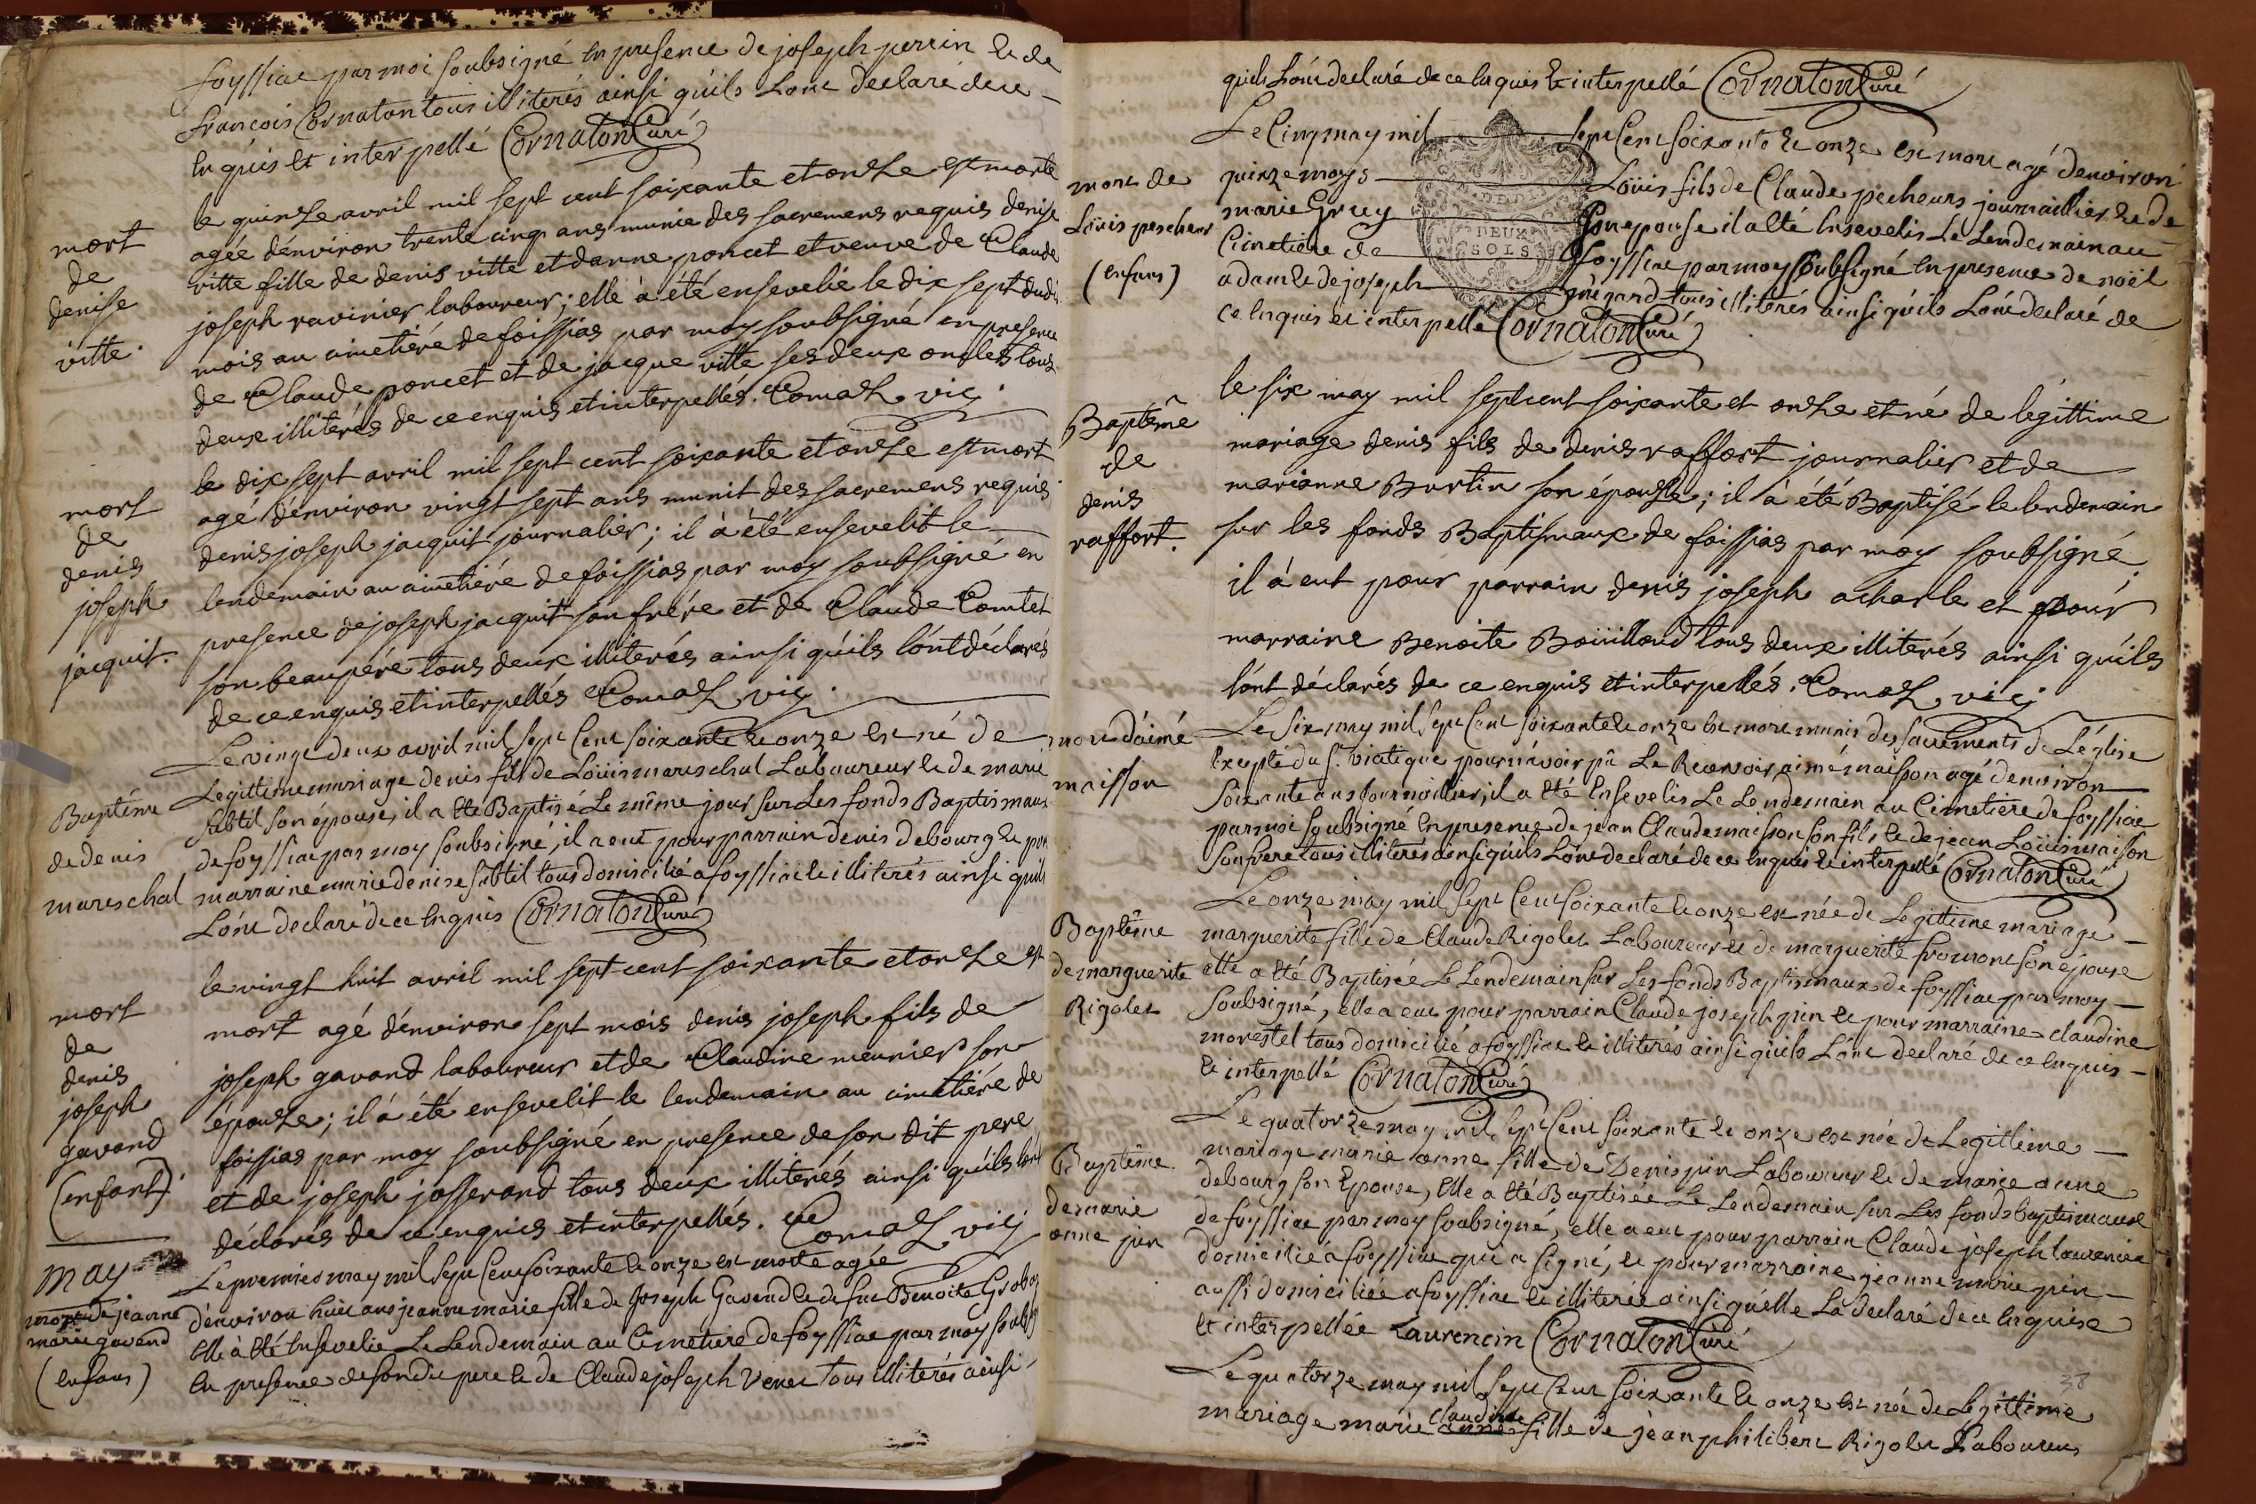 foyssiac par moi soubsigné en presence de joseph perrin et de
françois Cornaton tous illiterés ainsi qu'ils L'ont declaré de ce
enquis et interpellé Cornaton Curé
mort
de
denise
vitte.
le quinze avril mil sept cent soixante et onze est morte
agée d'environ trente cinq ans munie des sacremens requis denise
vitte fille de denis vitte et d'anne poncet et veuve de Claude
joseph ravinier laboureur; elle à été ensevelie le dix sept dudi
mois au cimetiére de foissias par moy soubsigné en presence
de Claude poncet et de jacque vitte ses deux oncles tous
deux illiterés de ce enquis et interpellés. Comas vic
mort
de
denis
joseph
jacquit.
le dix sept avril mil sept cent soixante et onze est mort
agé d'environ vingt sept ans munit des sacremens requis
denis joseph jacquit journalier; il à été ensevelit le
lendemain au cimetiére de foissias par moy soubsigné en
presence de joseph jacquit son frére et de Claude Comtet
son beaupére tous deux illiterés ainsi qu'ils l'ont déclarés
de ce enquis et interpellés Comas vic.
Baptême
de denis
mareschal
Le vingt deux avril mil sept Cent soixante et onze est né de
Legittime mariage denis fils de Loüis mareschal Laboureur et de marie
subtil son épouse, il a été Baptisé Le même jour sur Les fonds Baptismaux
de foyssiac par moy soubsigné, il a eut pour parrain denis debourg et pour
marraine marie denise subtil tous domicilié a foyssiac et illiterés ainsi quils
L'ont declaré de ce enquis Cornaton Curé
mort
de
denis
joseph
gavand
(enfant)
le vingt huit avril mil sept cent soixante et onze est
mort agé d'environ sept mois denis joseph fils de
joseph gavand laboureur et de Claudine meunier son
épouse; il à été ensevelit le lendemain au cimetiére de
foissias par moy soubsigné en presence de son dit pere
et de joseph josserand tous deux illiterés ainsi qu'ils l'ont
déclarés de ce enquis et interpellés. Comas vic
may
mort de jeanne
marie gavand
(enfant)
Le premier may mil sept Cent soixante et onze est morte agée
d'environ huit ans jeanne marie fille de joseph Gavand et de fue Benoite Grobon
elle à été Ensevelie Le Lendemain au Cimetiere de foyssiac par moy soubsigné
en presence de son du pere et de Claude joseph Venet tous illiterés ainsi
quils L'ont declaré de ce enquis et interpellé Cornaton Curé
mort de
Loüis pescheur
(enfans)
Le Cinq may mil sept Cent soixante et onze est mort agé d'environ
quinze moys Loüis fils de Claude pecheurs journaillier et de
marie Gruy son epouse il a été Ensevelis Le Lendemain au
Cimetiere de foyssiac par moy soubsigné en presence de noël
adam et de joseph mégard tous illiterés ainsi qu'ils L'ont declaré de
ce enquis et interpellé Cornaton Curé
DEUX
SOLS
Baptême
de
denis
raffort.
le six may mil sept cent soixante et onze et né de légittime
mariage denis fils de denis raffort journalier et de
marianne Burtin son épouse; il à été Baptisé le lendemain
sur les fonds Baptismaux de foissias par moy soubsigné
il à eut pour parrain denis joseph acharle et pour
marraine Benoite Boüilloud tous deux illiterés ainsi qu'ils
l'ont déclarés de ce enquis et interpellés. Comas vic
mort d'aimé
maisson
Le six may mil sept Cent soixante et onze est mort munis des sacrements de L'église
Excepté du st. viatique pour n'avoir pû Le Recevoir, aimé maisson agé d'environ
soixante ans journaillier, il a été Ensevelis Le Lendemain au Cimetiere de foyssiac
par moi soubsigné en presence de jean Claude maisson son fils et de jean Loüis maisson
son frere tous illiterés ainsi qu'ils L'ont declaré de ce enquis et interpellé Cornaton Curé
Baptême
de marguerite
Rigolet
Le onze may mil sept Cent soixante et onze est née de Legittime mariage
marguerite fille de Claude Rigolet Laboureur et de marguerite fromont son epouse
elle a été Baptisée Le Lendemain sur Les fonds Baptismaux de foyssiac par moy
soubsigné, elle a eut pour parrain Claude joseph pin et pour marraine claudine
morestel tous domicilié a foyssiac et illiterés ainsi qu'ils L'ont declaré de ce enquis
et interpellé Cornaton Curé
Baptême
de marie
anne pin
Le quatorze may mil sept Cent soixante et onze est née de Legittime
mariage marie anne fille de Denis pin Laboureur et de marie anne
debourg son Epouse, Elle a été Baptisée Le Lendemain sur Les fonds baptismaux
de foyssiac par moy soubsigné, elle a eut pour parrain Claude joseph Laurencin
domicilié a foyssiac qui a signé, et pour marraine jeanne marie pin
aussi domiciliée a foyssiac et illiterée ainsi qu'elle La declaré de ce enquise
et interpellée Laurencin Cornaton Curé
38
Le quatorze may mil sept Cent soixante et onze est née de Legittime
mariage marie claudine fille de jean philibert Rigolet Laboureur